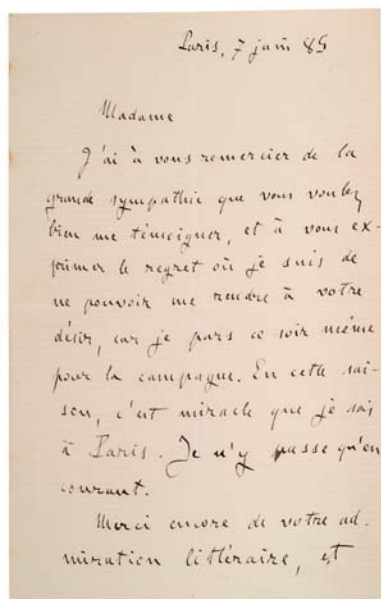 Paris, 7 juin 85
Madame
J'ai à vous remercier de la
grande sympathie que vous voulez
bien me témoigner, et à vous ex-
primer le regret où je suis de
ne pouvoir me rendre à votre
désir, car je pars ce soir même
pour la campagne. En cette sai-
son, c'est miracle que je sois
à Paris. Je n'y passe qu'en
courant.
Merci encore de votre ad-
miration littéraire, et